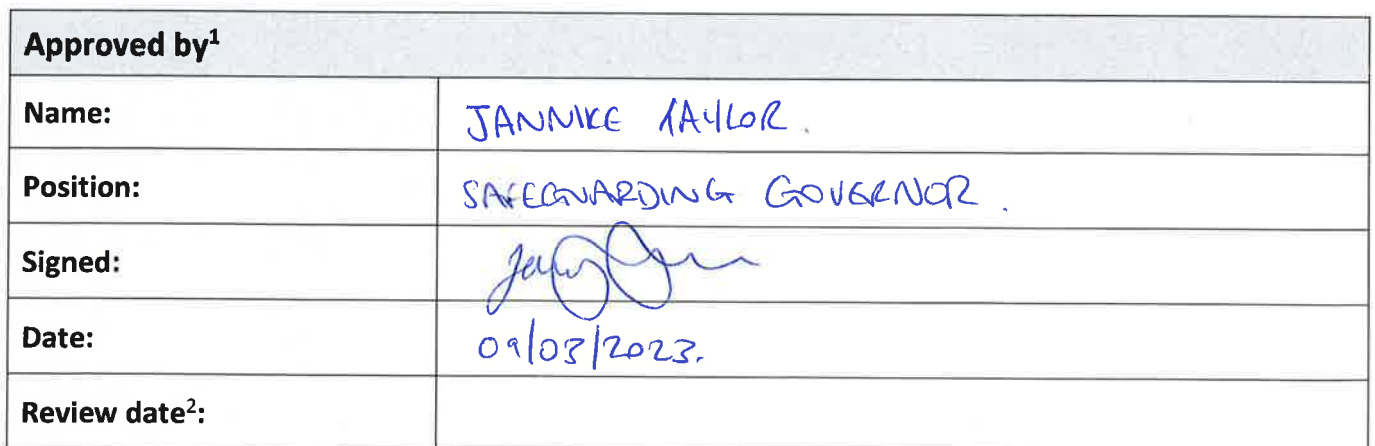 Approved by¹
Name: JANNIKE TAYLOR.
Position: SAFEGUARDING GOVERNOR.
Signed:
Date: 09/03/2023.
Review date²: